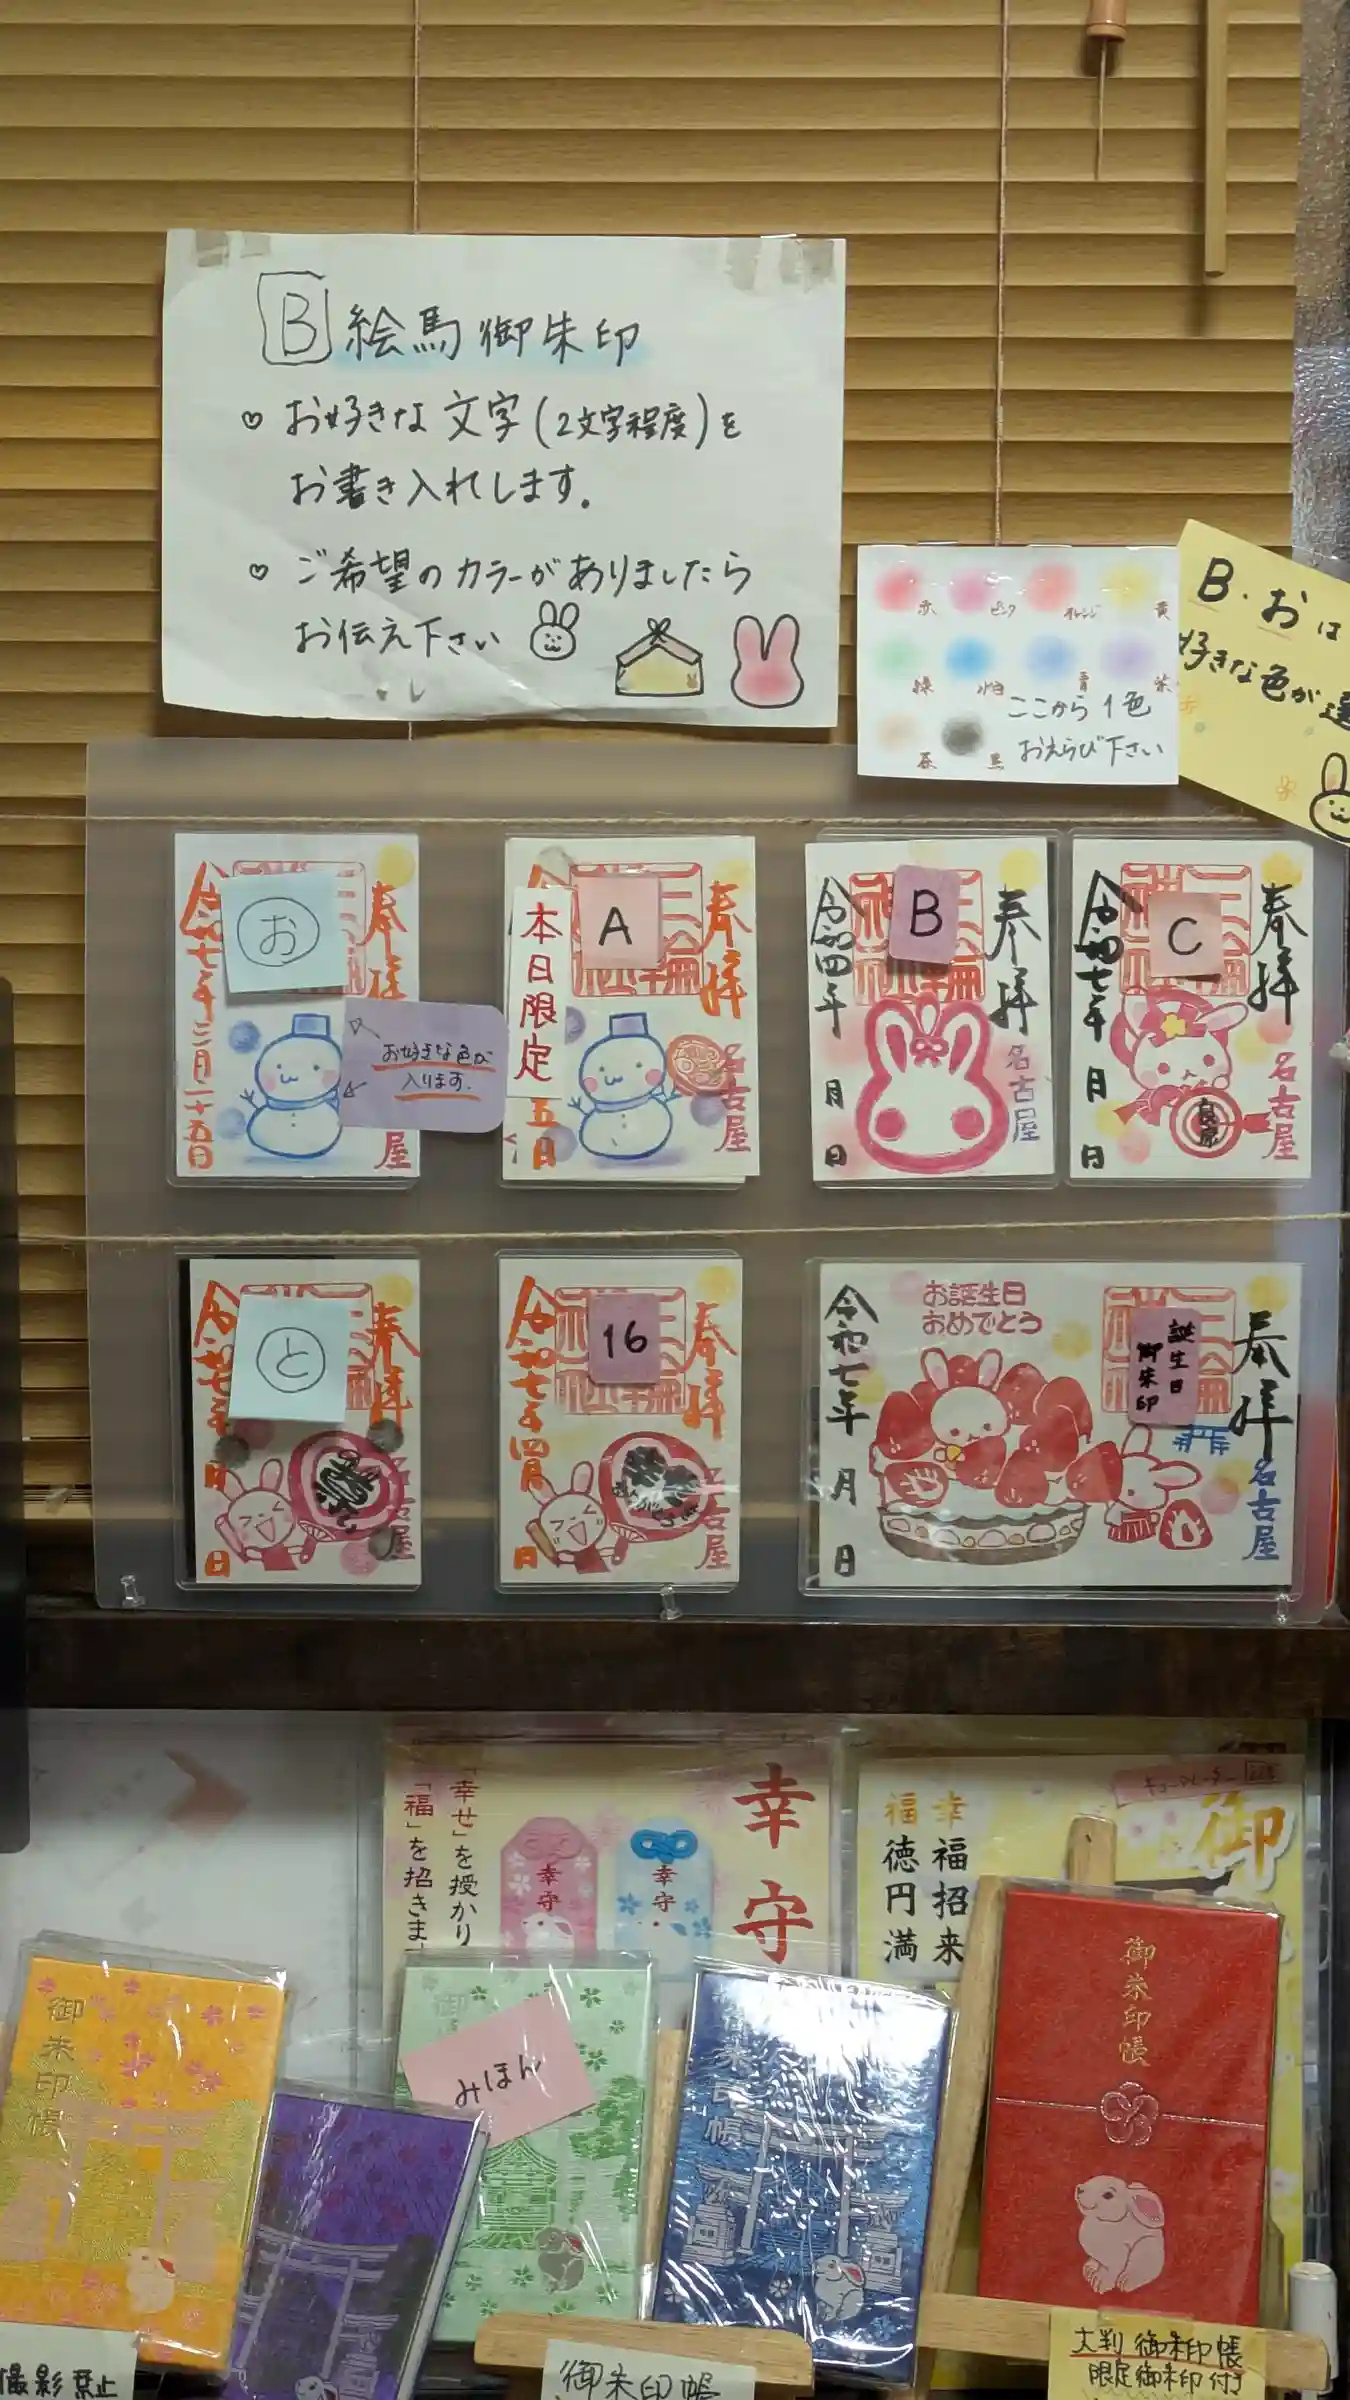 B 絵馬御朱印
♡ お好きな文字(2文字程度)を
お書き入れします。
♡ ご希望のカラーがありましたら
お伝え下さい
赤 ピンク オレンジ 黄
緑 水色 青 紫
茶 黒
ここから1色
おえらび下さい
B・おは
好きな色が選
お
奉拝
令和七年三月二十五日
屋
お好きな色が
入ります。
A
本日限定
奉拝
五日
名古屋
B
奉拝
令和四年 月 日
名古屋
C
奉拝
令和七年 月 日
名古屋
と
奉拝
令和七年 月 日
屋
16
奉拝
令和七年四月 日
屋
お誕生日
おめでとう
誕生日
御朱印
奉拝
令和七年 月 日
名古屋
幸守
「幸せ」を授かり
「福」を招きま
幸守
幸守
幸福招来
福徳円満
御
御朱印帳
みほん
御朱印帳
御朱印帳
撮影禁止
御朱印帳
大判御朱印帳
限定御朱印付き